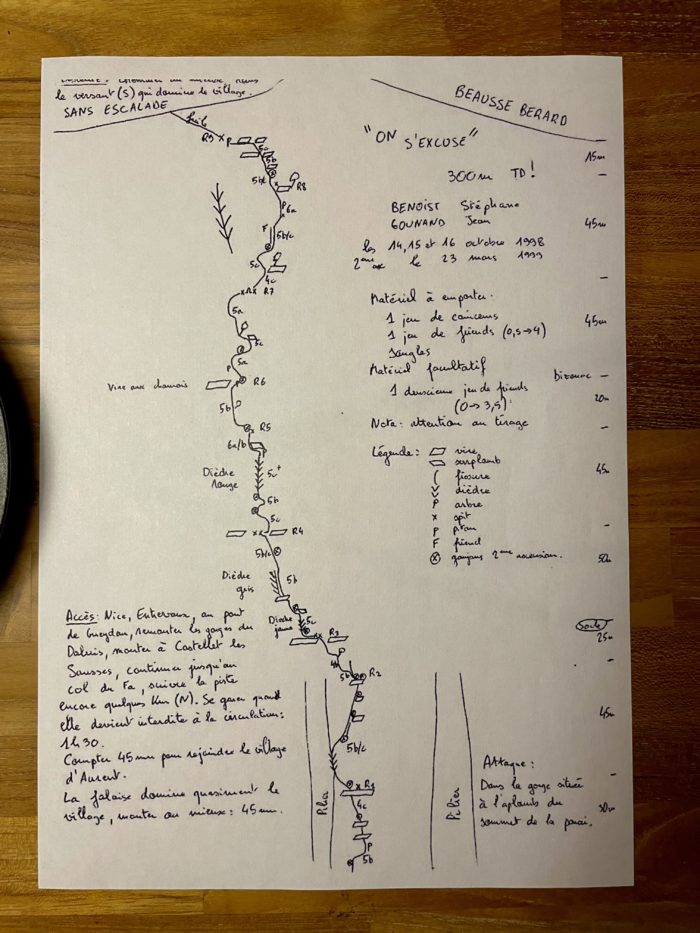 le versant (S) qui domine le village.
SANS ESCALADE
BEAUSSE BERARD
"ON S'EXCUSE"
300m TD!
BENOIST Stéphane
GOUNAND Jean
les 14, 15 et 16 octobre 1998
2ème asc le 23 mars 1999
Matériel à emporter:
1 jeu de coinceurs
1 jeu de friends (0,5→4)
Sangles
Matériel facultatif
1 deuxième jeu de friends
(0→3,5)
Nota: attention au tirage
Légende: vire
surplomb
fissure
dièdre
P arbre
x spit
P piton
F friend
goujons 2ème ascension.
15m
45m
45m
Bivouac
20m
45m
50m
25m
45m
30m
R9 x P
5b/c
R8
6a
F 5b/c
5c
4c
R7
5a
5c
5a
P
Vire aux chamois
R6
5b
R5
6a/b
Dièdre
Rouge
5c+
5b
5c
R4
5b/c
Dièdre
gris
5b
Dièdre
jaune
5c
R3
P
5b R2
5b/c
R1
4c
P
5b
Pilier
Pilier
Accès: Nice, Entrevaux, au pont
de Gueydan, remonter les gorges du
Daluis, monter à Castellet les
Sausses, continuer jusqu'au
col du Fa, suivre la piste
encore quelques Km (N). Se garer quand
elle devient interdite à la circulation:
1h30.
Compter 45mn pour rejoindre le village
d'Aurent.
La falaise domine quasiment le
village, monter au mieux: 45mn.
Attaque:
Dans la gorge située
à l'aplomb du
sommet de la paroi.